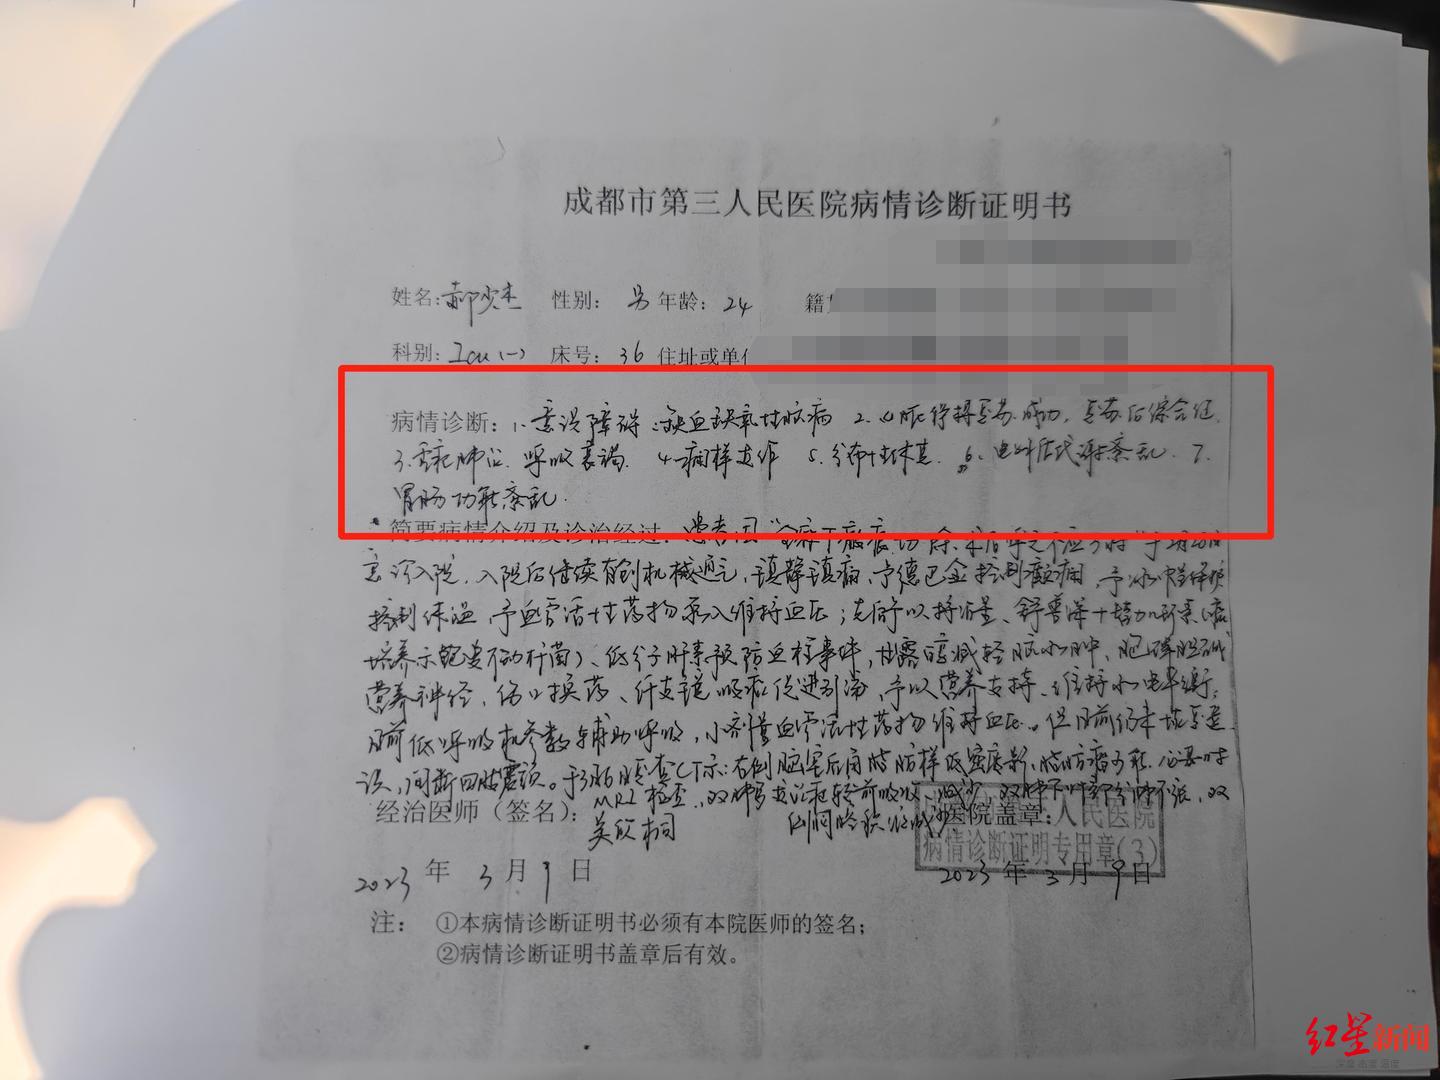 成都市第三人民医院病情诊断证明书
姓名: 郝 性别: 男 年龄: 24 籍
科别: Icu(一) 床号: 36 住址或单
病情诊断: 1. 意识障碍:缺血缺氧性脑病 2. 心脏停搏复苏成功, 复苏后综合征
3. 重症肺炎 呼吸衰竭 4. 痫样发作 5. 分布性休克 6. 电解质代谢紊乱 7.
胃肠功能紊乱.
简要病情介绍及诊治经过: 患者因"全麻下 切除术后
急诊入院. 入院后继续有创机械通气, 镇静镇痛, 予德巴金控制癫痫, 予冰帽保护
控制体温, 予血管活性药物泵入维持血压; 先后予以 舒普深+替加环素(痰
培养示鲍曼不动杆菌)、低分子肝素预防血栓事件, 甘露醇减轻脑水肿, 胞磷胆碱
营养神经, 伤口换药、纤支镜吸痰促进引流, 予以营养支持、维持水电平衡;
目前低呼吸机参数辅助呼吸, 小剂量血管活性药物维持血压. 但目前仍未恢复意
识, 间断四肢震颤. 于 查CT示: 右侧脑室后角旁 低密度影, 必要时
MRI检查, 双肺 炎症较前吸收、减少, 双肺下叶部分肺不张, 双
侧胸腔积液减少
经治医师(签名): 医院盖章:
人民医院
病情诊断证明专用章(3)
2023 年 3 月 9 日 2023 年 3 月 9 日
注: ①本病情诊断证明书必须有本院医师的签名;
②病情诊断证明书盖章后有效。
红星新闻
深度 态度 温度